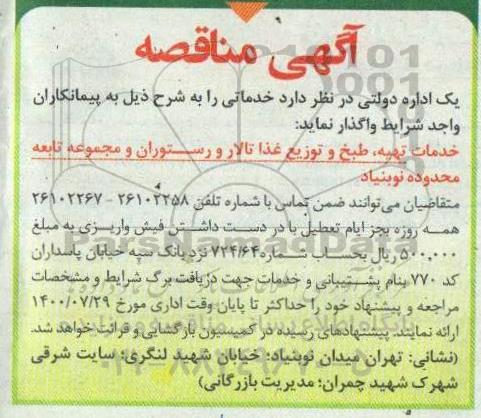 آگهی مناقصه
یک اداره دولتی در نظر دارد خدماتی را به شرح ذیل به پیمانکاران
واجد شرایط واگذار نماید:
خدمات تهیه، طبخ و توزیع غذا تالار و رستوران و مجموعه تابعه
محدوده نوبنیاد
متقاضیان می‌توانند ضمن تماس با شماره تلفن ۲۶۱۰۲۲۵۸ - ۲۶۱۰۲۲۶۷
همه روزه بجز ایام تعطیل با در دست داشتن فیش واریزی به مبلغ
۵۰۰,۰۰۰ ریال بحساب شماره ۷۲۴/۶۴ نزد بانک سپه خیابان پاسداران
کد ۷۷۰ بنام پشتیبانی و خدمات جهت دریافت برگ شرایط و مشخصات
مراجعه و پیشنهاد خود را حداکثر تا پایان وقت اداری مورخ ۱۴۰۰/۰۷/۲۹
ارائه نمایند. پیشنهادهای رسیده در کمیسیون بازگشایی و قرائت خواهد شد.
(نشانی: تهران میدان نوبنیاد؛ خیابان شهید لنگری؛ سایت شرقی
شهرک شهید چمران؛ مدیریت بازرگانی)
ParsNamadData